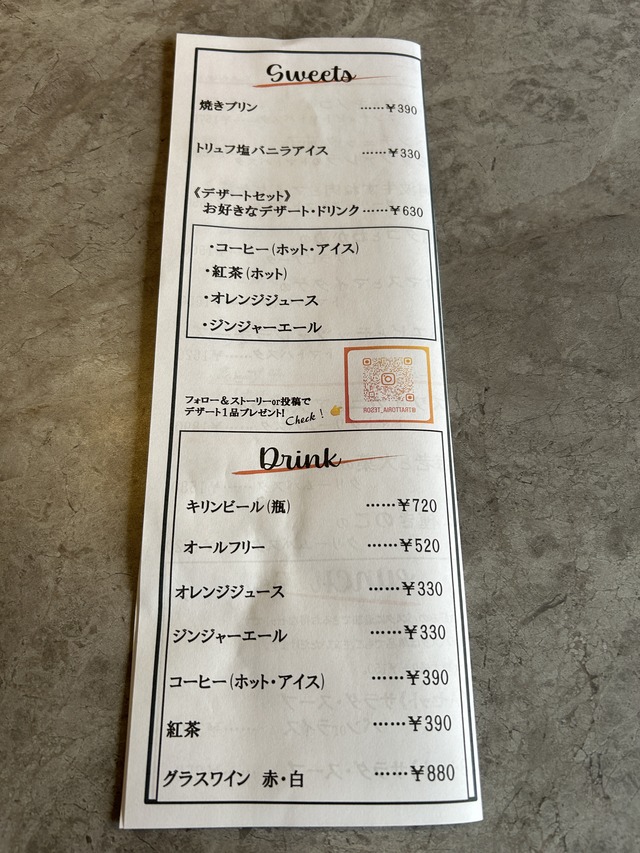 Sweets
焼きプリン ……¥390
トリュフ塩バニラアイス ……¥330
《デザートセット》
お好きなデザート・ドリンク ……¥630
・コーヒー(ホット・アイス)
・紅茶(ホット)
・オレンジジュース
・ジンジャーエール
フォロー＆ストーリーor投稿で
デザート1品プレゼント!
Check!
@TRATTORIA_TESOR
Drink
キリンビール(瓶) ……¥720
オールフリー ……¥520
オレンジジュース ……¥330
ジンジャーエール ……¥330
コーヒー(ホット・アイス) ……¥390
紅茶 ……¥390
グラスワイン 赤・白 ……¥880